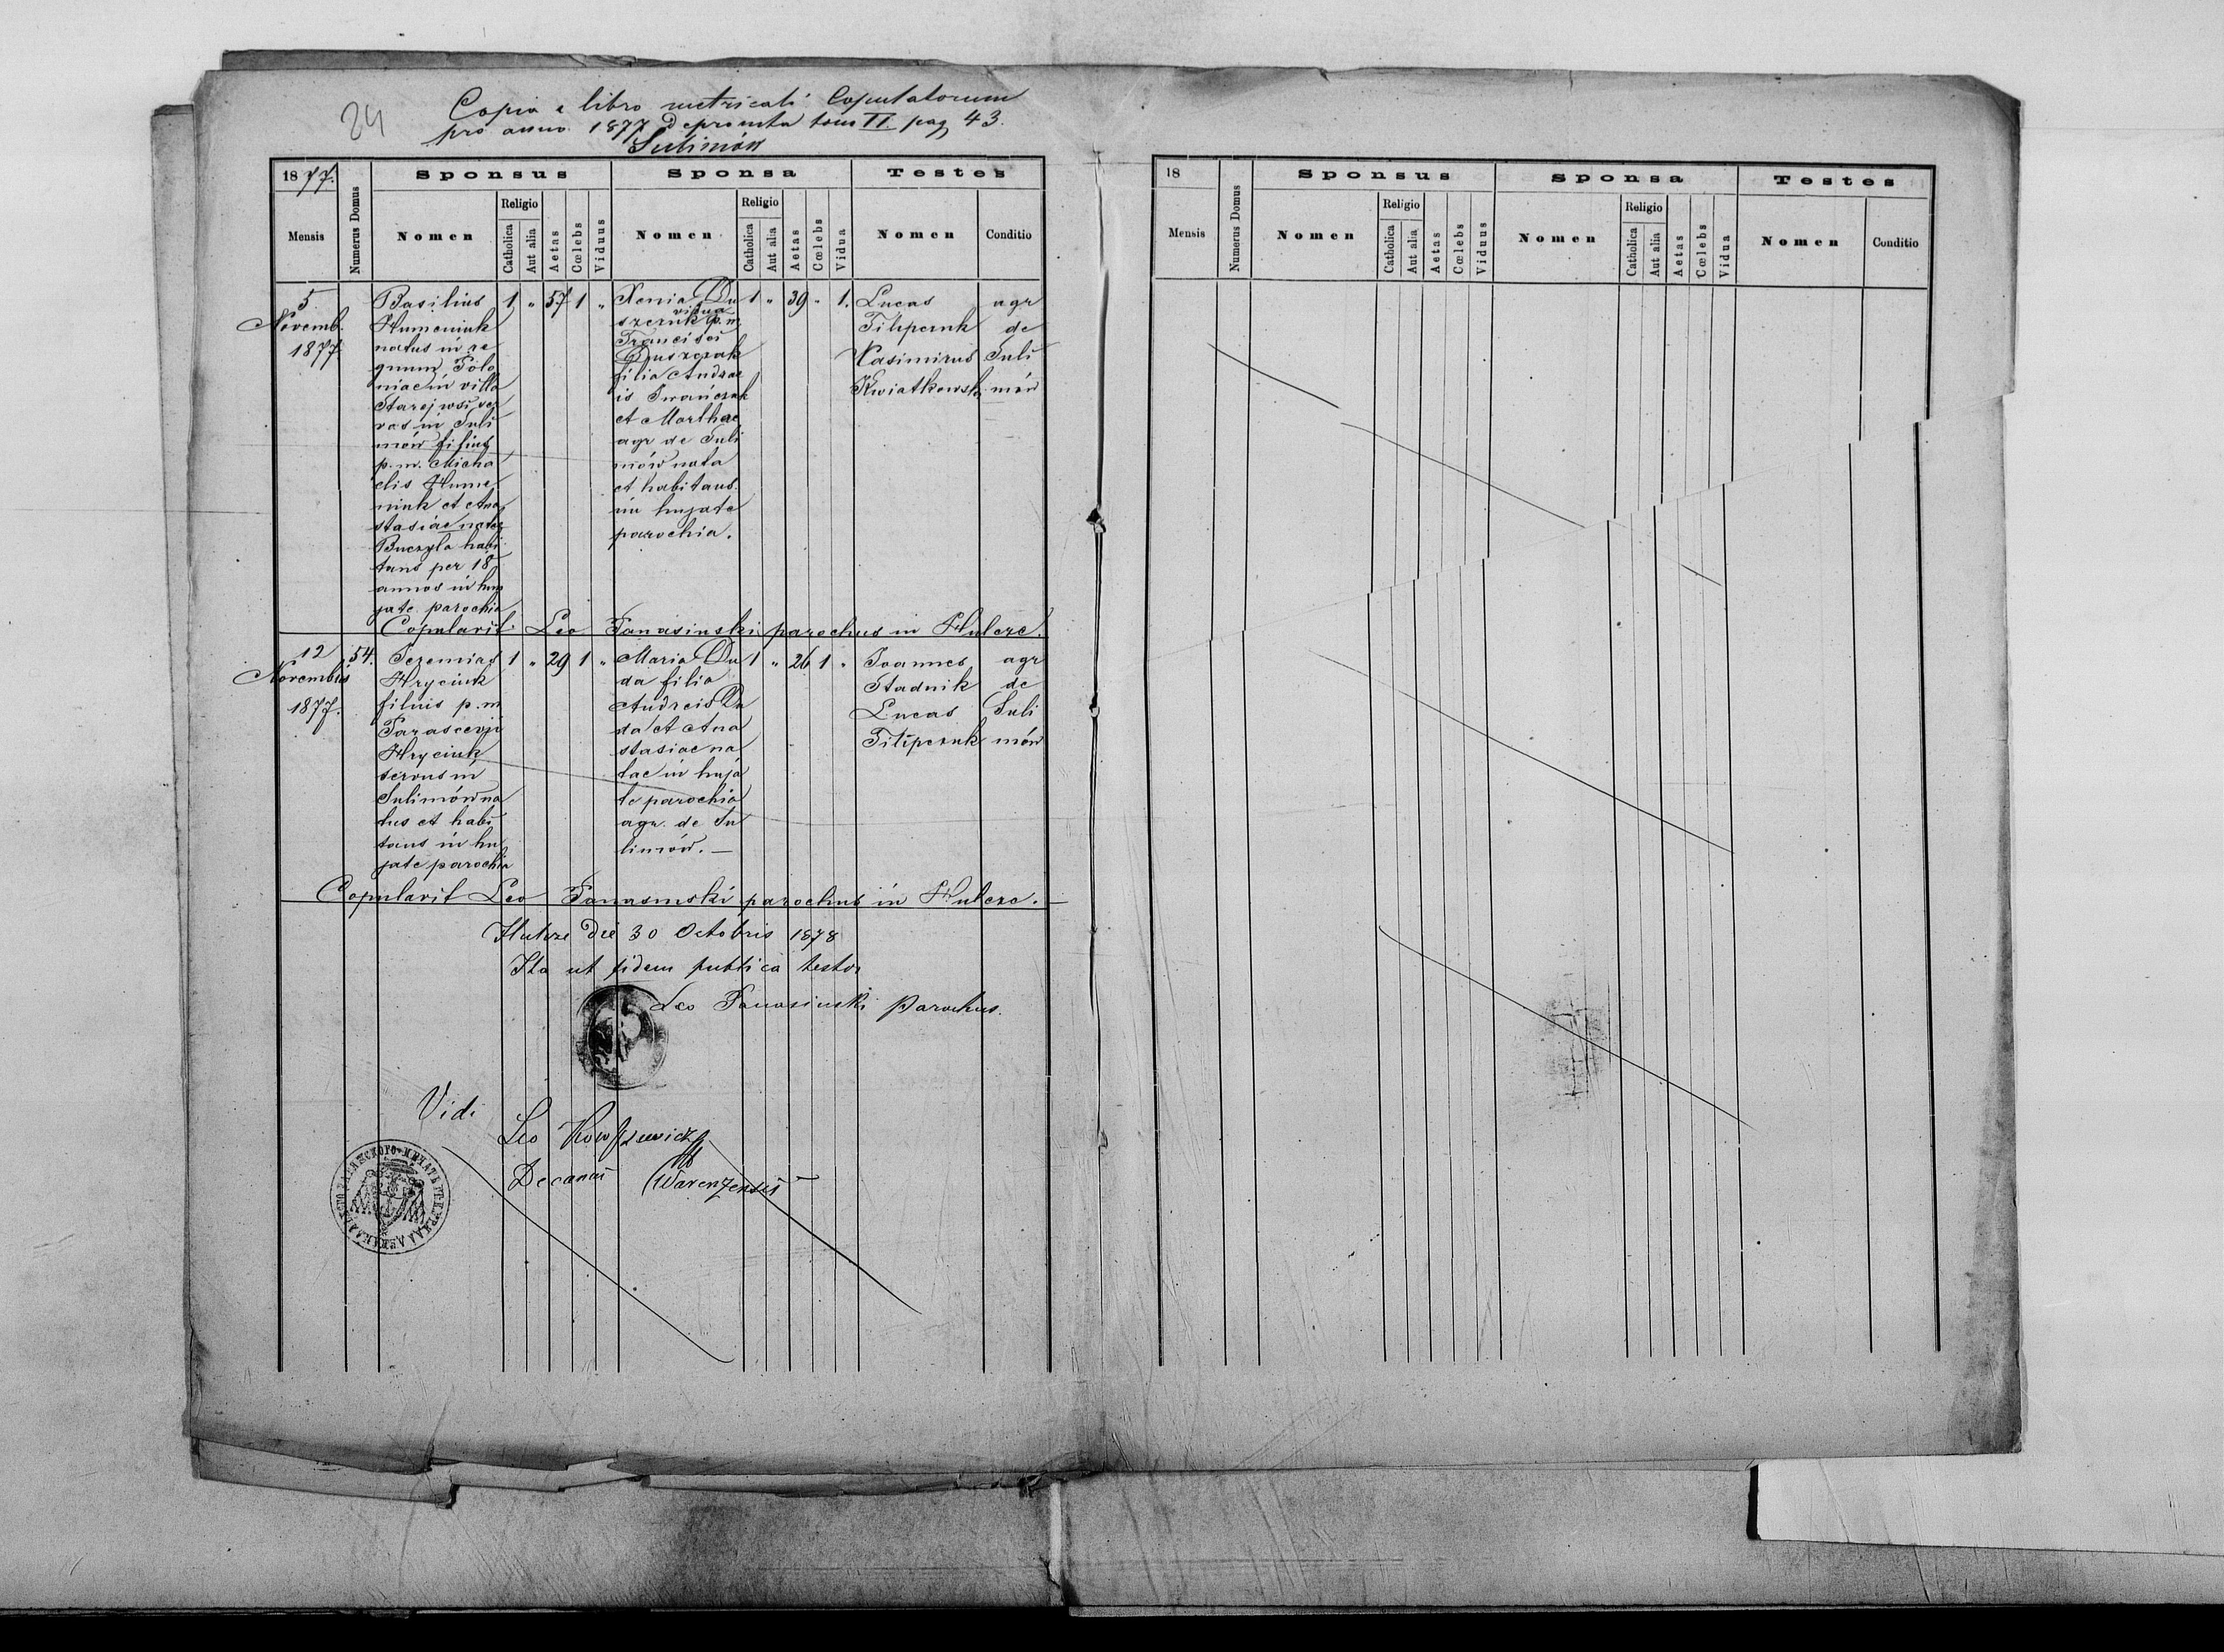 24
Copia e libro metricali Copulatorum
pro anno 1877 depromta tom II pag 43.
Sulimów
1877.
Mensis
Numerus Domus
Sponsus
Nomen
Religio
Catholica
Aut alia
Aetas
Cœlebs
Viduus
Sponsa
Nomen
Religio
Catholica
Aut alia
Aetas
Cœlebs
Vidua
Testes
Nomen
Conditio
5
Novemb.
1877
Basilius
Humeniuk
natus in re
gnum Polo
niae in villa
Starejwsi ser
vus in Suli
mów filius
p.m. Micha
elis Hume
niuk et Ana
stasiae natae
Buczyla habi
tans per 18
annos in hu
jate parochia
1 " 57 1 "
Xenia Du
szczuk vidua p.m.
Francisci
Duszczak
filia Andrae
is Iwańczuk
et Marthae
agr de Suli
mów nata
et habitans
in hujate
parochia.
1 " 39 " 1.
Lucas
Filipczuk
Kasimirus
Kwiatkowski
agr
de
Suli
mów
Copulavit Leo Tanasinski parochus in Hulcze.
12
Novembris
1877.
54.
Jeremias
Hryciuk
filius p.m
Parascevii
Hryciuk
servus in
Sulimów na
tus et habi
tans in hu
jate parochia
1 " 29 1 "
Maria Du
da filia
Andreis Du
da et Ana
stasiae na
tae in huja
te parochia
agr. de Su
limów. —
1 " 26 1 "
Joannes
Stadnik
Lucas
Filipczuk
agr
de
Suli
mów
Copulavit Leo Tanasinski parochus in Hulcze. —
Hulcze die 30 Octobris 1878
Ita ut fidem publica testor
Leo Tanasinski Parochus.
Vidi
Leo
Decanus Warenzensis
18
Mensis
Numerus Domus
Sponsus
Nomen
Religio
Catholica
Aut alia
Aetas
Cœlebs
Viduus
Sponsa
Nomen
Religio
Catholica
Aut alia
Aetas
Cœlebs
Vidua
Testes
Nomen
Conditio